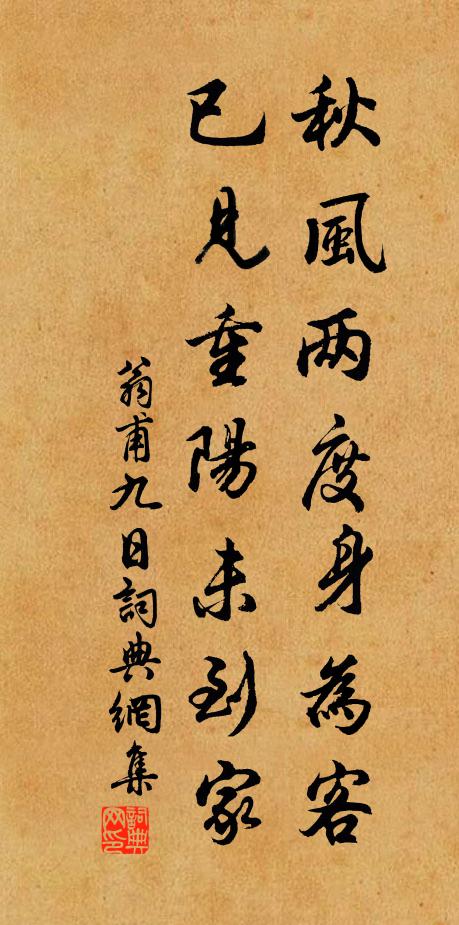 秋風两度身為客
已見重陽未到家
翁甫九日詞典網集
詞典网印